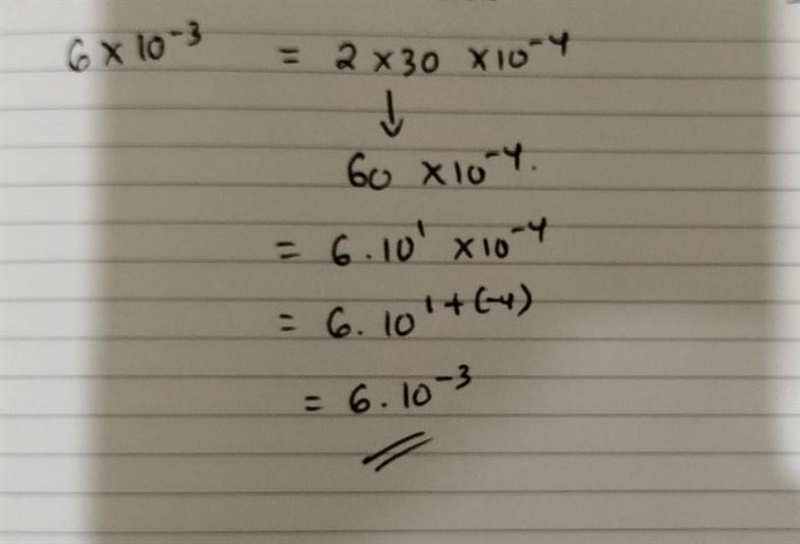 6 × 10⁻³ = 2 × 30 × 10⁻⁴
↓
60 × 10⁻⁴.
= 6 . 10¹ × 10⁻⁴
= 6 . 10¹⁺⁽⁻⁴⁾
= 6 . 10⁻³